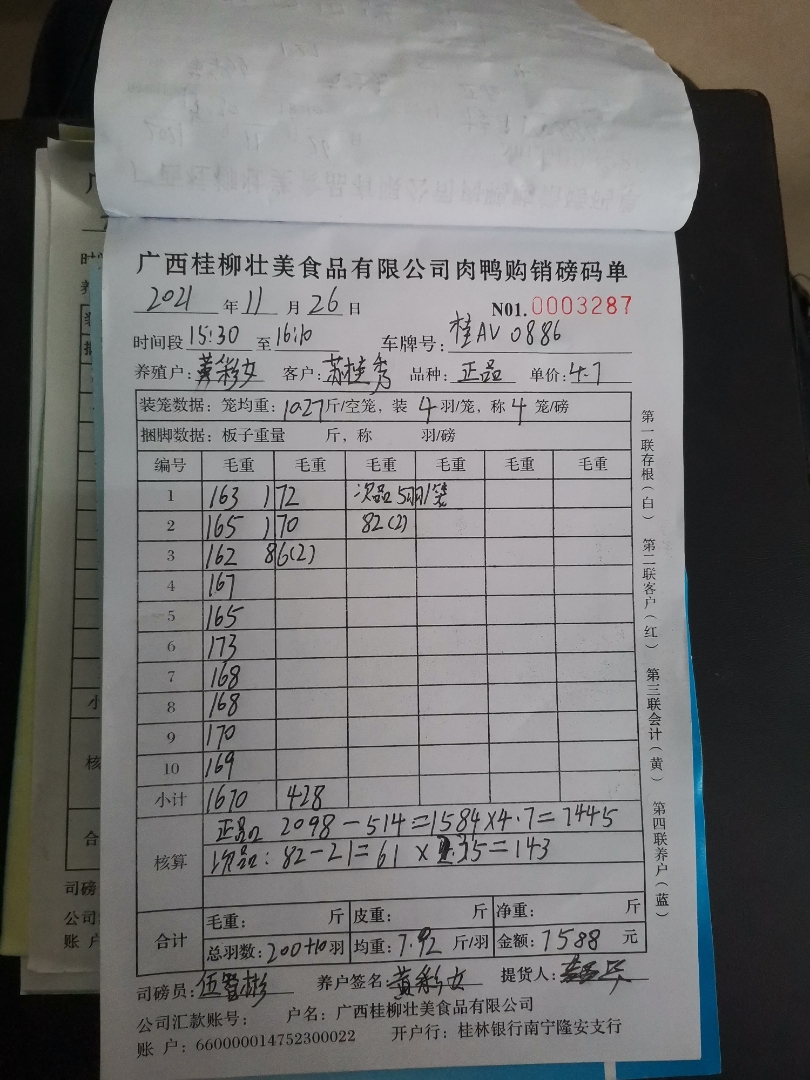 广西桂柳壮美食品有限公司肉鸭购销磅码单
2021 年 11 月 26 日 N01.0003287
时间段 15:30 至 16:10 车牌号: 桂AV 0886
养殖户: 黄彩女 客户: 苏桂秀 品种: 正品 单价: 4.7
装笼数据: 笼均重: 10.27 斤/空笼, 装 4 羽/笼, 称 4 笼/磅
捆脚数据: 板子重量 斤, 称 羽/磅
编号 毛重 毛重 毛重 毛重 毛重 毛重
1 163 172 次品 5羽/笼
2 165 170 82(2)
3 162 86(2)
4 167
5 165
6 173
7 168
8 168
9 170
10 169
小计 1670 428
核算
正品 2098-514=1584×4.7=7445
次品: 82-21=61×2.35=143
合计
毛重: 斤 皮重: 斤 净重: 斤
总羽数: 200+10 羽 均重: 7.92 斤/羽 金额: 7588 元
司磅员: 伍智彬 养户签名: 黄彩女 提货人:
公司汇款账号: 户名: 广西桂柳壮美食品有限公司
账户: 660000014752300022 开户行: 桂林银行南宁隆安支行
第一联存根(白) 第二联客户(红) 第三联会计(黄) 第四联养户(蓝)